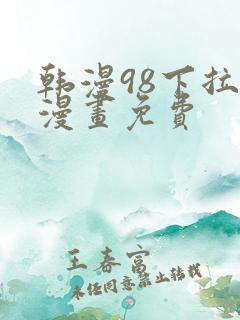 韩漫98下拉
漫畫免費
王春富
未经同意禁止转载